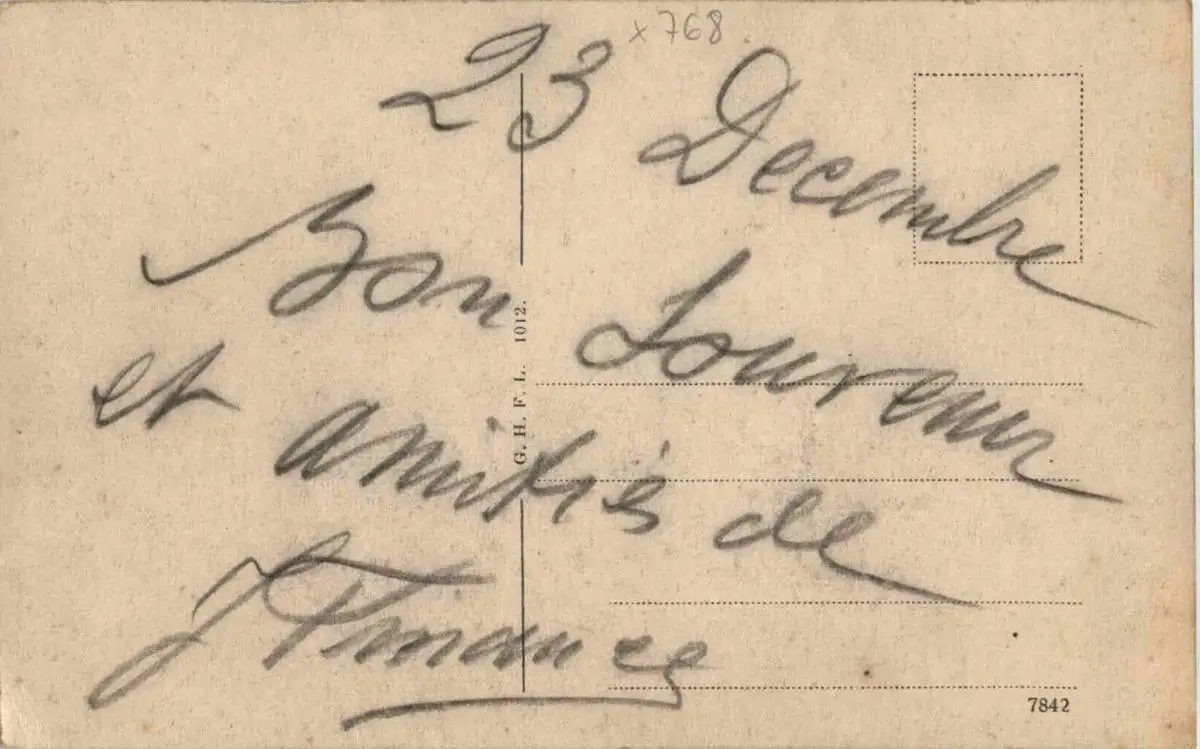 x 768
23 Decembre
Bon Souvenir
et amitiés de
G. H. F. L. 1012.
7842